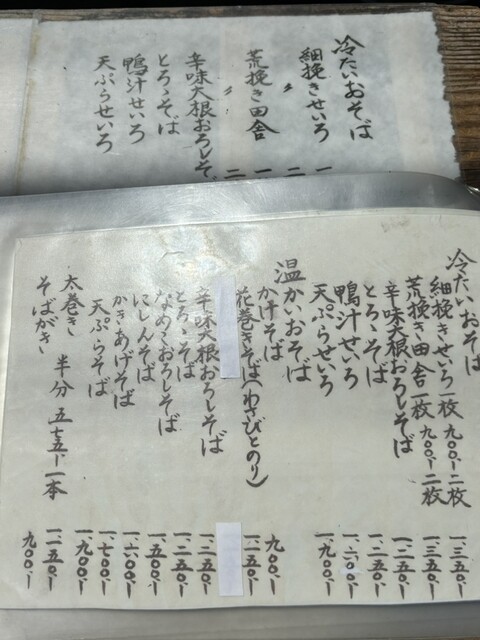 冷たいおそば
細挽きせいろ 一
〃 二
荒挽き田舎 一
〃 二
辛味大根おろしそ
とろゝそば
鴨汁せいろ
天ぷらせいろ
冷たいおそば
細挽きせいろ一枚 九〇〇、ー二枚 一、三五〇、ー
荒挽き田舎一枚 九〇〇、ー二枚 一、三五〇、ー
辛味大根おろしそば 一、二五〇、ー
とろゝそば 一、二五〇、ー
鴨汁せいろ 一、六〇〇、ー
天ぷらせいろ 一、九〇〇、ー
温かいおそば
かけそば 九〇〇、ー
花巻きそば(わさびとのり) 一、二五〇、ー
辛味大根おろしそば 一、二五〇、ー
とろゝそば 一、二五〇、ー
なめこおろしそば 一、五〇〇、ー
にしんそば 一、六〇〇、ー
かきあげそば 一、七〇〇、ー
天ぷらそば 一、九〇〇、ー
太巻き 半分 五七五、ー 一本 一、一五〇、ー
そばがき 九〇〇、ー